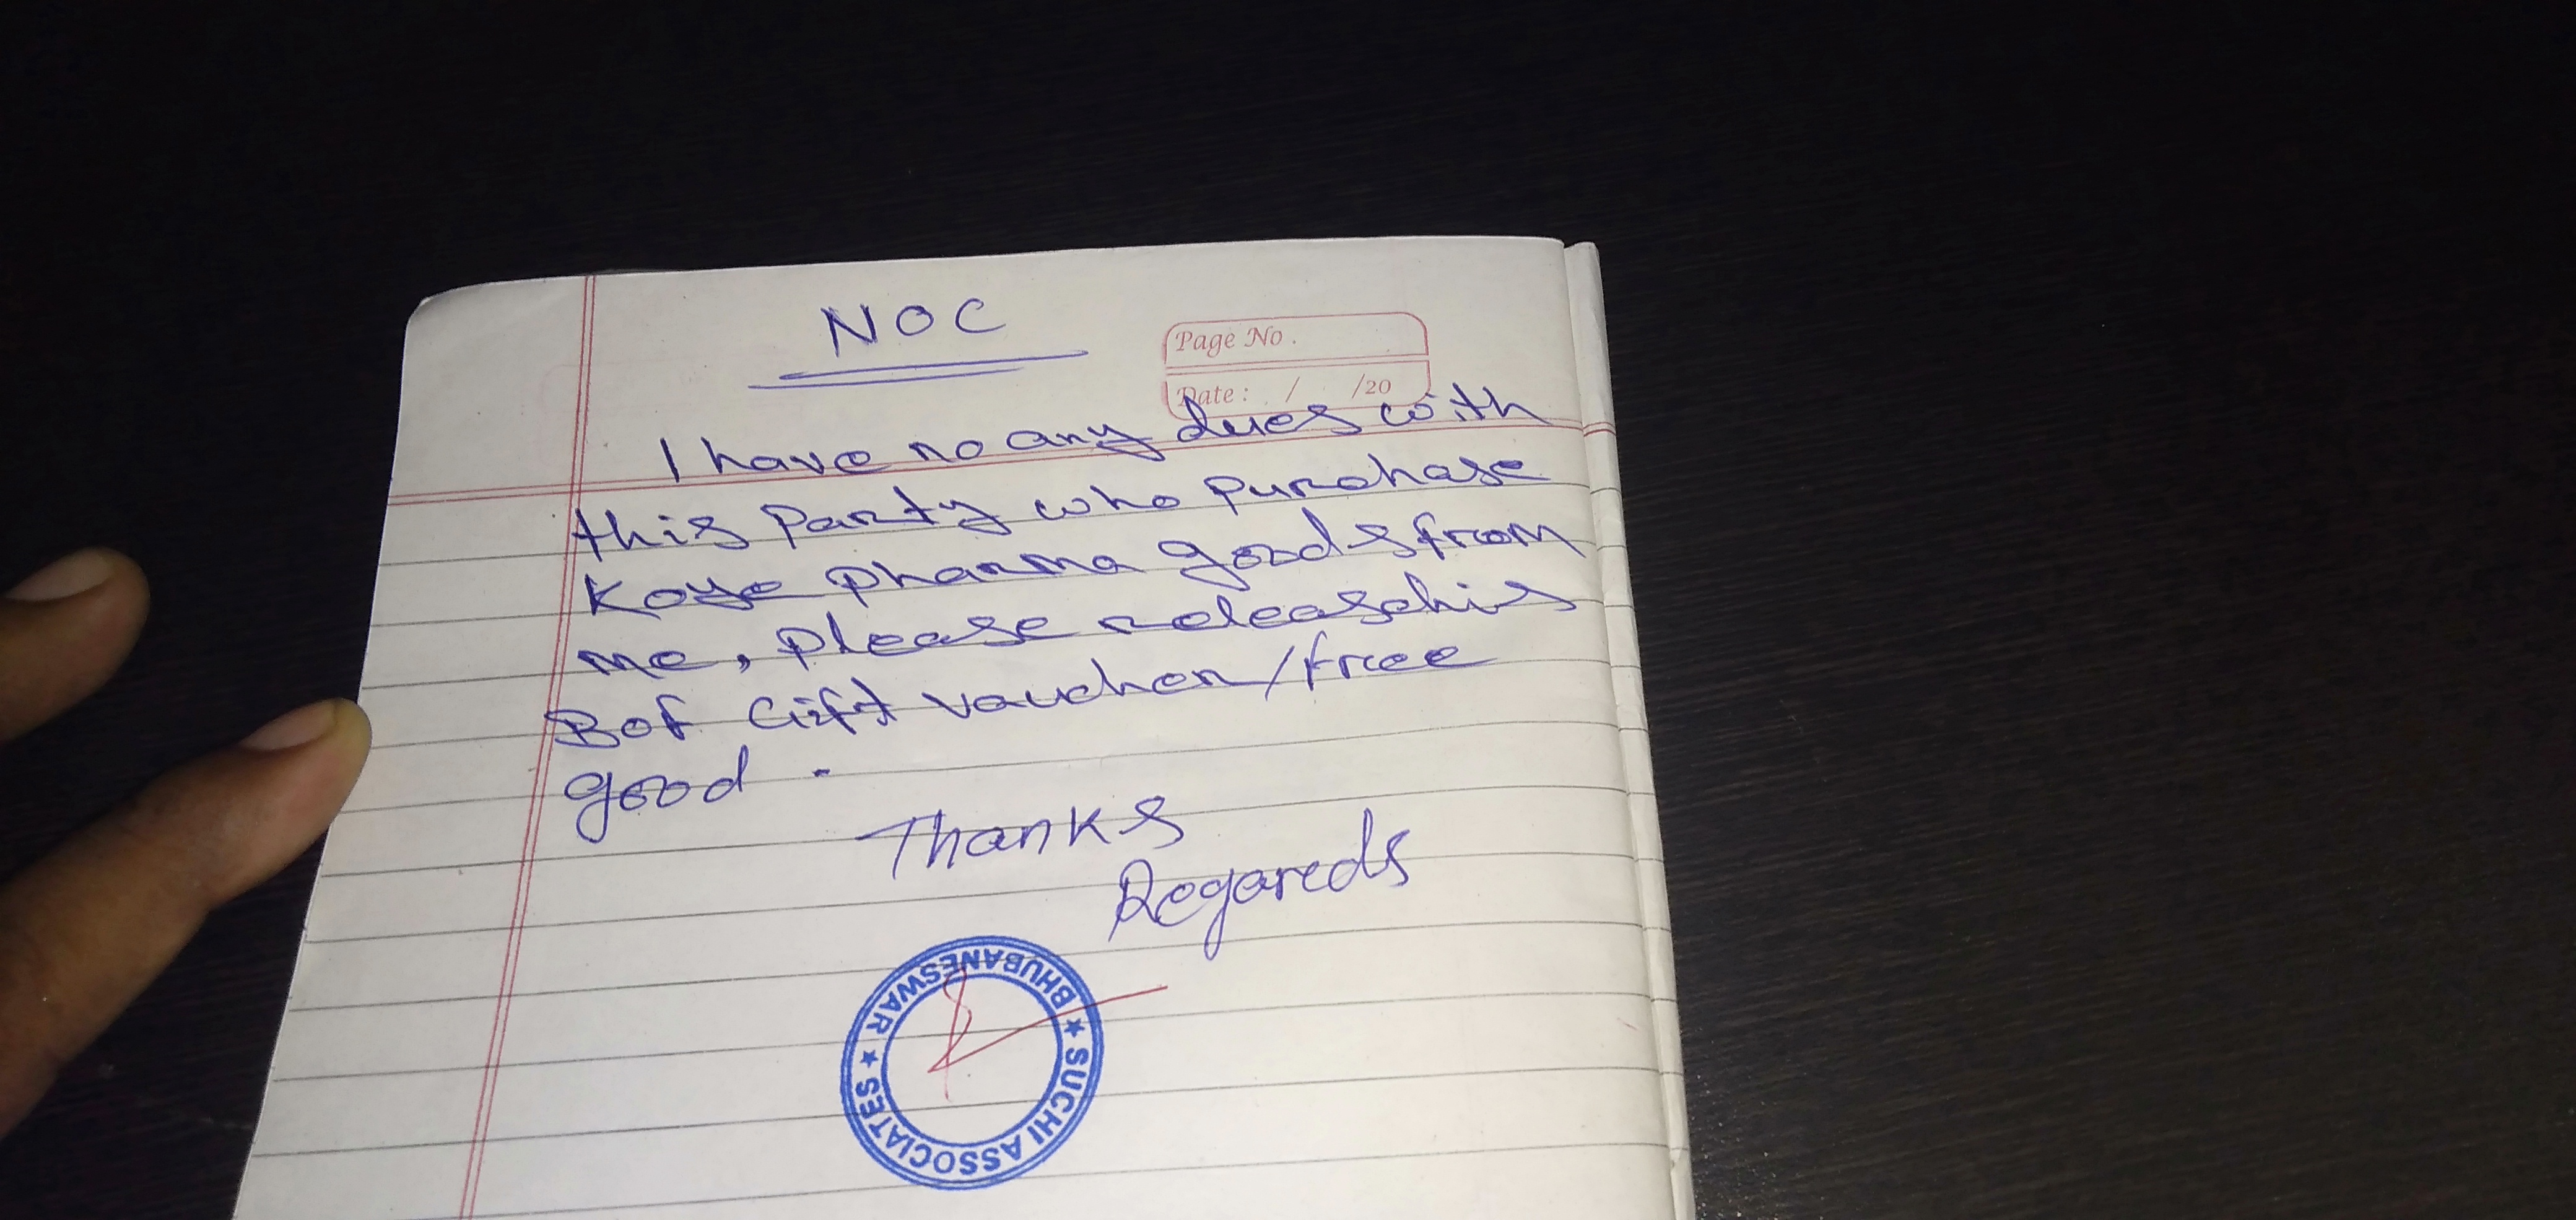 NOC
Page No.
Date: / /20
I have no any dues with
this party who purchase
Koye pharma goods from
me, please release his
Bof Gift voucher/free
good.
Thanks
Regareds
BHUBANESWAR ★ SUCHI ASSOCIATES ★